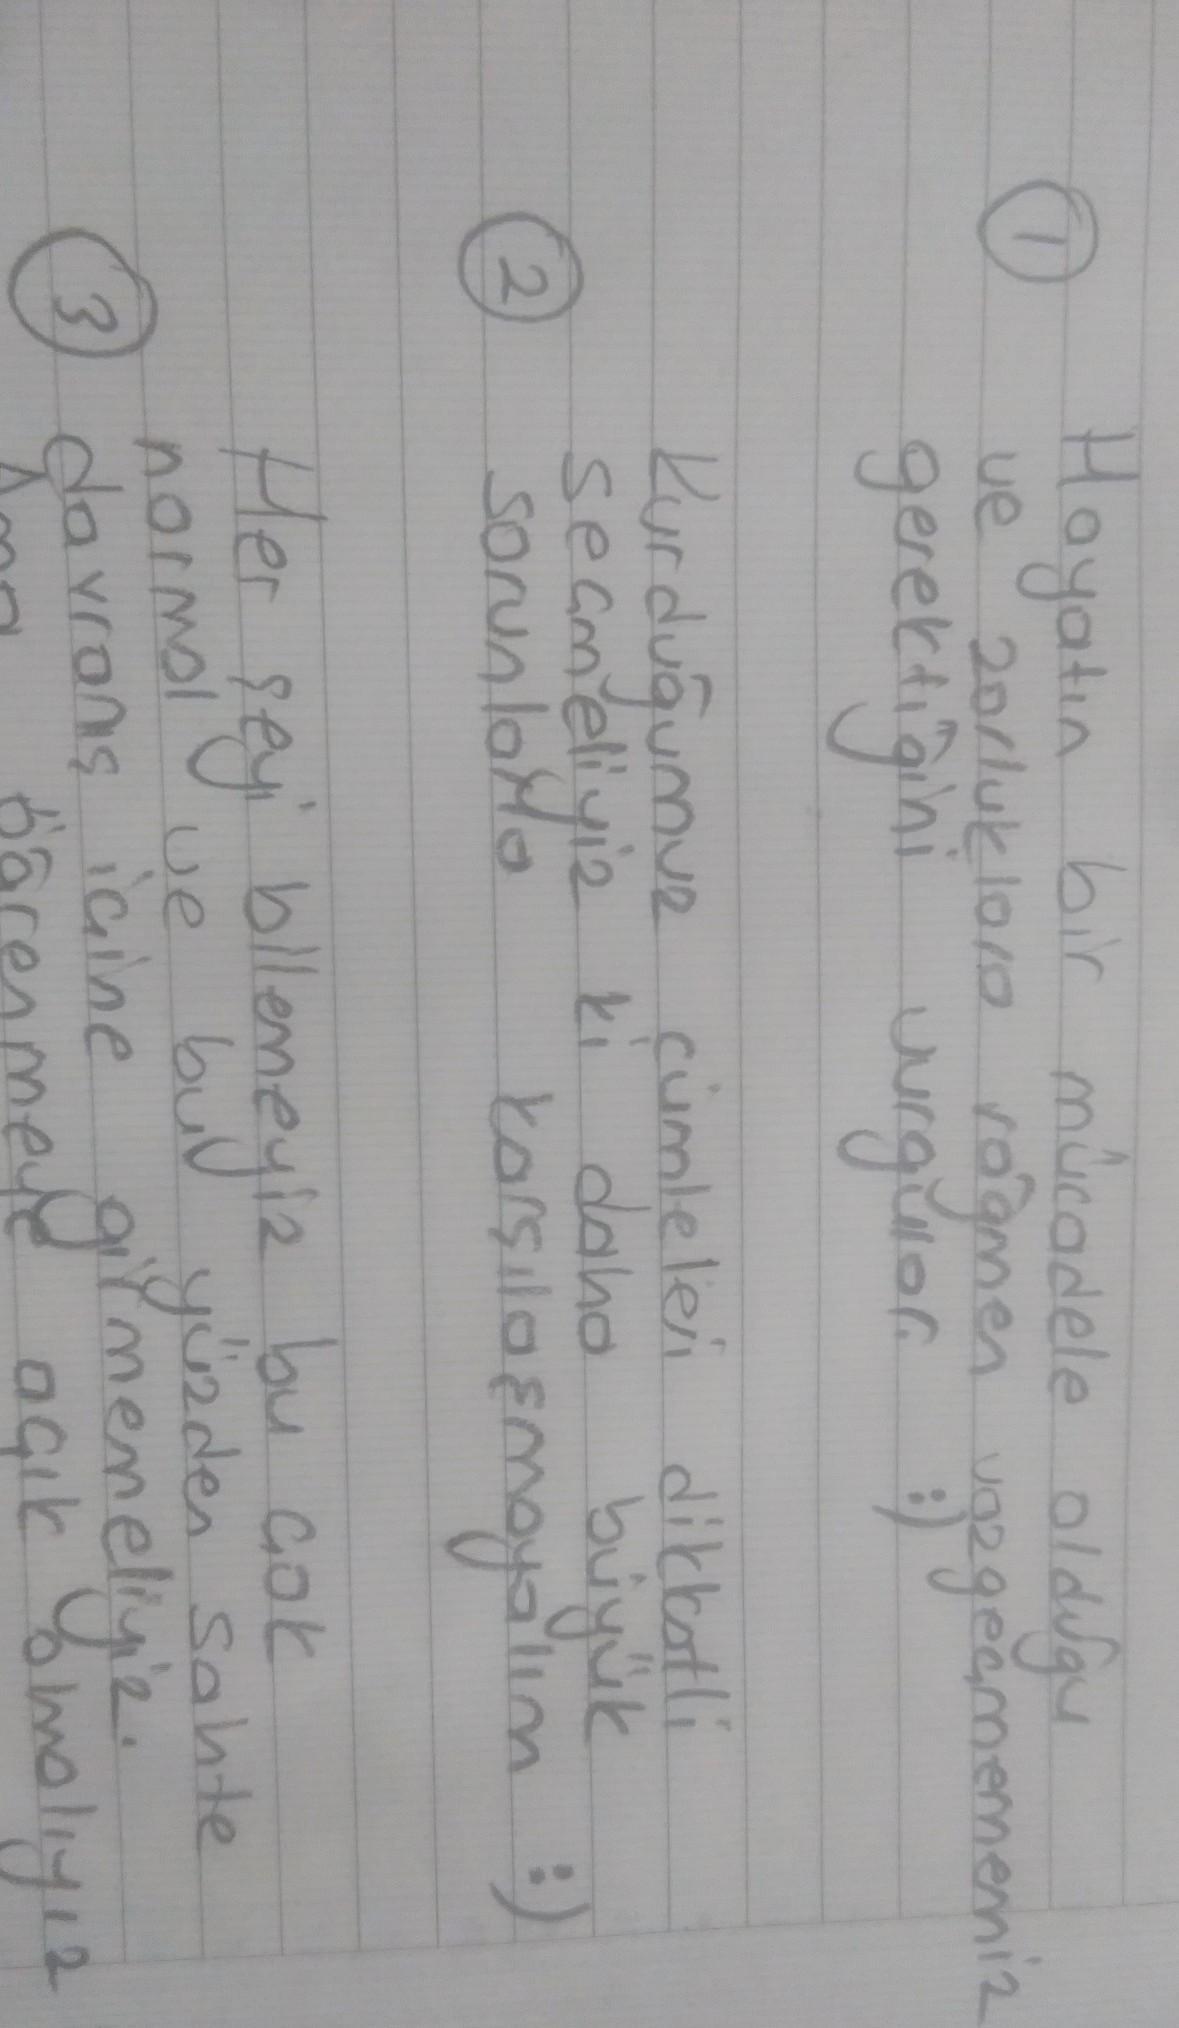 ① Hayatın bir mücadele olduğu
ve zorluklara rağmen vazgeçmememiz
gerektiğini vurgular. :)
Kurduğumuz cümleleri dikkatli
seçmeliyiz ki daha büyük
② sorunlarla karşılaşmayalım :)
Her şeyi bilemeyiz bu çok
normal ve bu yüzden sahte
③ davranış içine girmemeliyiz.
Ama öğrenmeye açık olmalıyız